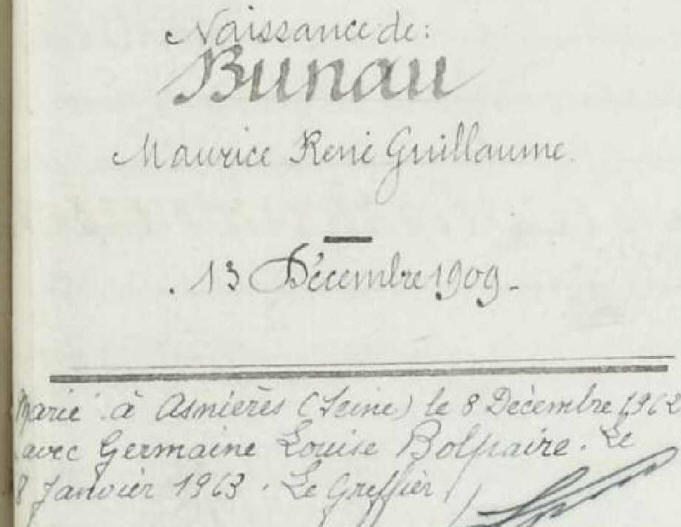 Naissance de:
Bunau
Maurice René Guillaume.
. 13 Décembre 1909 -
Marié à Asnières (Seine) le 8 Décembre 1962
avec Germaine Louise Bolpaire. Le
8 Janvier 1963. Le Greffier